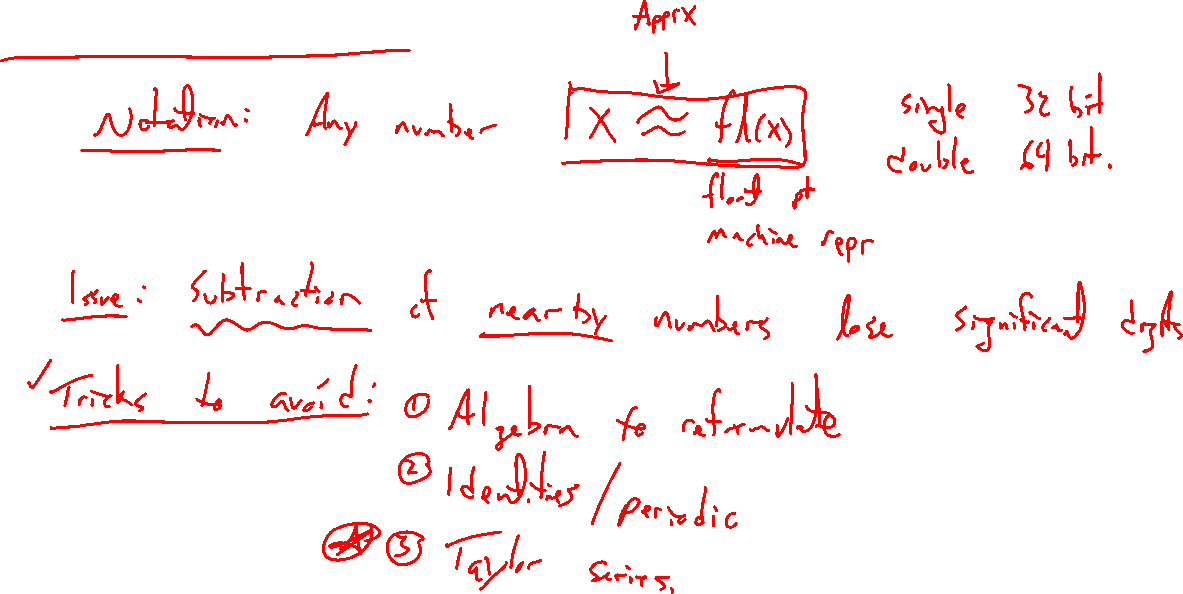 Apprx
Notation: Any number x ≈ fl(x) single 32 bit
double 64 bit.
float pt
machine repr
Issue: Subtraction of nearby numbers lose significant digits
✓ Tricks to avoid: ① Algebra to reformulate
② Identities / periodic
★ ③ Taylor series.